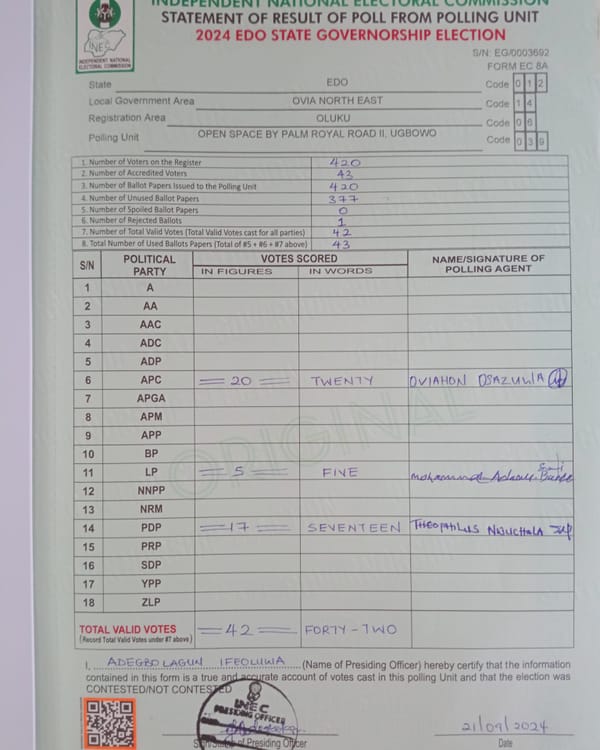 INDEPENDENT NATIONAL ELECTORAL COMMISSION
STATEMENT OF RESULT OF POLL FROM POLLING UNIT
2024 EDO STATE GOVERNORSHIP ELECTION
INEC
INDEPENDENT NATIONAL
ELECTORAL COMMISSION
S/N: EG/0003692
FORM EC 8A
State EDO Code 0 1 2
Local Government Area OVIA NORTH EAST Code 1 4
Registration Area OLUKU Code 0 6
Polling Unit OPEN SPACE BY PALM ROYAL ROAD II, UGBOWO Code 0 3 9
1. Number of Voters on the Register 420
2. Number of Accredited Voters 43
3. Number of Ballot Papers Issued to the Polling Unit 420
4. Number of Unused Ballot Papers 377
5. Number of Spoiled Ballot Papers 0
6. Number of Rejected Ballots 1
7. Number of Total Valid Votes (Total Valid Votes cast for all parties) 42
8. Total Number of Used Ballots Papers (Total of #5 + #6 + #7 above) 43
S/N POLITICAL PARTY VOTES SCORED NAME/SIGNATURE OF POLLING AGENT
IN FIGURES IN WORDS
1 A
2 AA
3 AAC
4 ADC
5 ADP
6 APC 20 TWENTY OVIAHON OSAZUWA
7 APGA
8 APM
9 APP
10 BP
11 LP 5 FIVE
12 NNPP
13 NRM
14 PDP 17 SEVENTEEN THEOPHILUS
15 PRP
16 SDP
17 YPP
18 ZLP
ORIGINAL
TOTAL VALID VOTES 42 FORTY-TWO
(Record Total Valid Votes under #7 above)
I, ADEGBOLAGUN IFEOLUWA (Name of Presiding Officer) hereby certify that the information
contained in this form is a true and accurate account of votes cast in this polling Unit and that the election was
CONTESTED/NOT CONTESTED
INEC
PRESIDING OFFICER
21/09/2024
of Presiding Officer Date